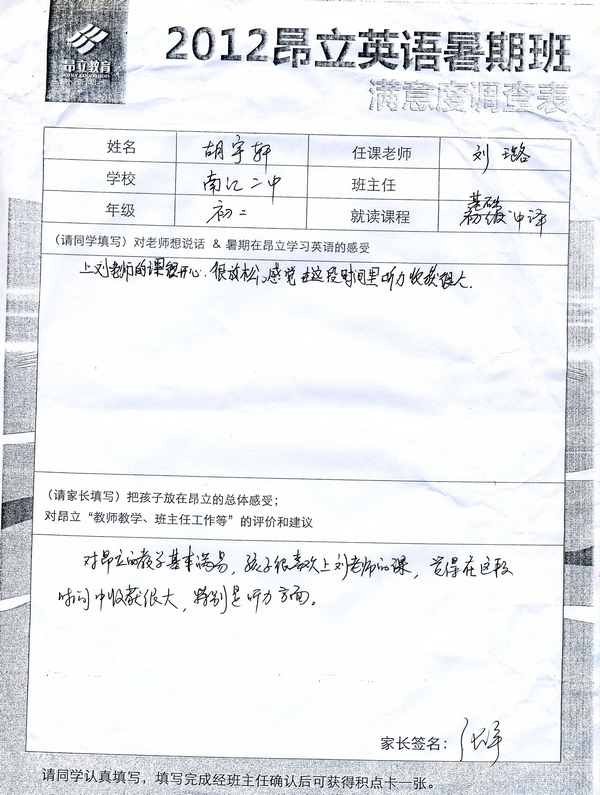 昂立教育
2012昂立英语暑期班
满意度调查表
姓名 胡宇轩 任课老师 刘璐
学校 南汇二中 班主任
年级 初二 就读课程 中译
(请同学填写)对老师想说话 & 暑期在昂立学习英语的感受
上刘老师的课很开心,很放松。感觉在这段时间里听力收获很大.
(请家长填写)把孩子放在昂立的总体感受;
对昂立“教师教学、班主任工作等”的评价和建议
对昂立的教学基本满意,孩子很喜欢上刘老师的课,觉得在这段
时间中收获很大,特别是听力方面。
家长签名:
请同学认真填写,填写完成经班主任确认后可获得积点卡一张。